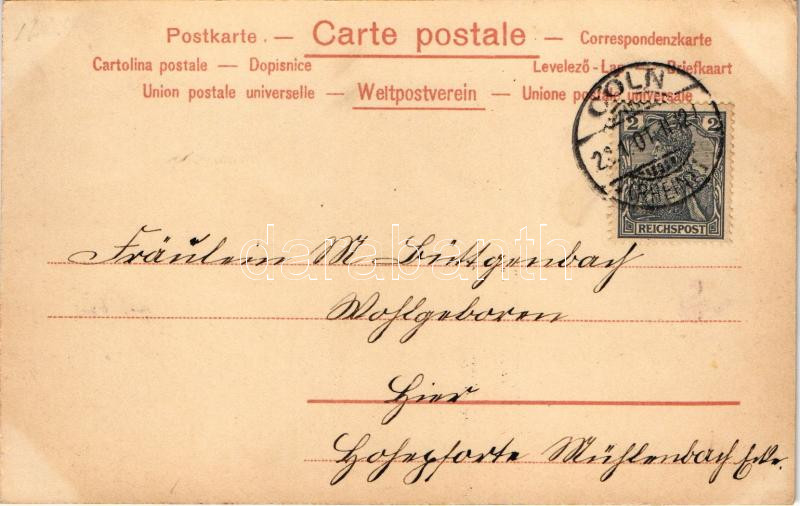 Postkarte. — Carte postale — Correspondenzkarte
Cartolina postale — Dopisnice Levelező - Lap — Briefkaart
Union postale universelle — Weltpostverein — Unione postale universale
CÖLN
(RHEIN)
2 2
REICHSPOST
darabanth
Fräulein M Büttgenbach
Wohlgeboren
Hier
Hohepforte Mühlenbach Ecke.